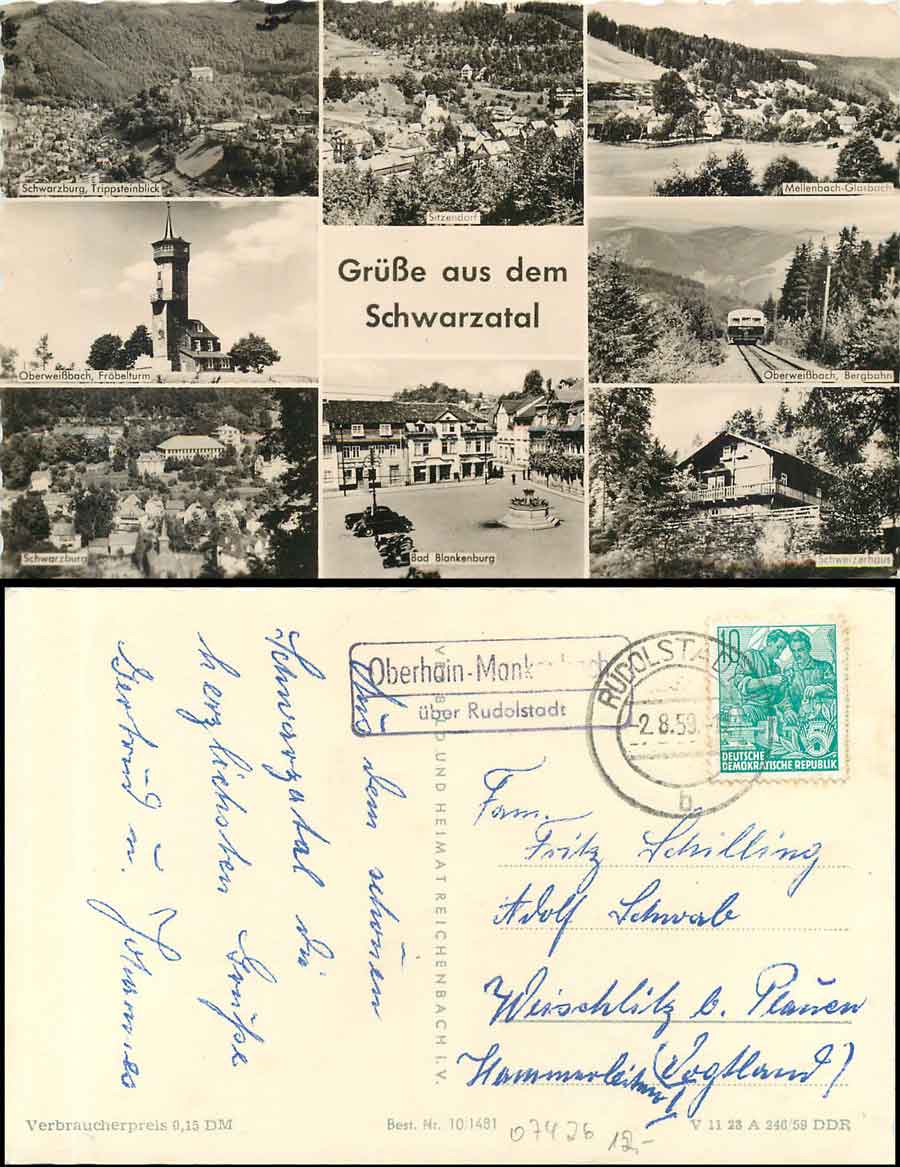 Schwarzburg, Trippsteinblick
Sitzendorf
Mellenbach-Glasbach
Grüße aus dem
Schwarzatal
Oberweißbach, Fröbelturm
Oberweißbach, Bergbahn
Schwarzburg
Bad Blankenburg
Schweizerhaus
Aus dem schönen
Schwarzatal die
herzlichsten Grüße
Gertrud u. Johannes
Oberhain-Mank
über Rudolstadt
RUDOLSTA
2.8.59
b
10
DEUTSCHE
DEMOKRATISCHE REPUBLIK
BILD UND HEIMAT REICHENBACH I. V.
Fam.
Fritz Schilling
Adolf Schwab
Weischlitz b. Plauen
(Vogtland)
Verbraucherpreis 0,15 DM
Best. Nr. 10/1481
07426 12,-
V 11 28 A 246/59 DDR